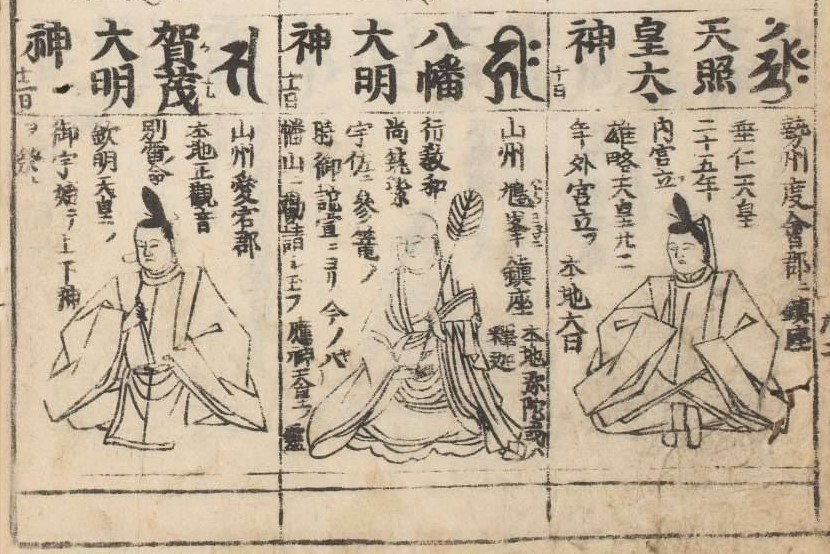 天照
皇太
神
十日
勢州度會郡ニ鎮座
垂仁天皇
二十五年
内宮立
雄略天皇廿二
年外宮立フ
本地大日
八幡
大明
神
十一日
山州鳩峯鎮座
本地弥陀或ハ
釋迦
行教和
尚筑紫
宇佐ニ參篭ノ
時御託宣ニヨリ今ノ八
幡山ニ勸請シ玉フ應神天皇ノ靈
賀茂
大明
神
十二日
山州愛宕郡
本地正觀音
別雷命
欽明天皇ノ
御宇始テ上下神
ヲ祭ル